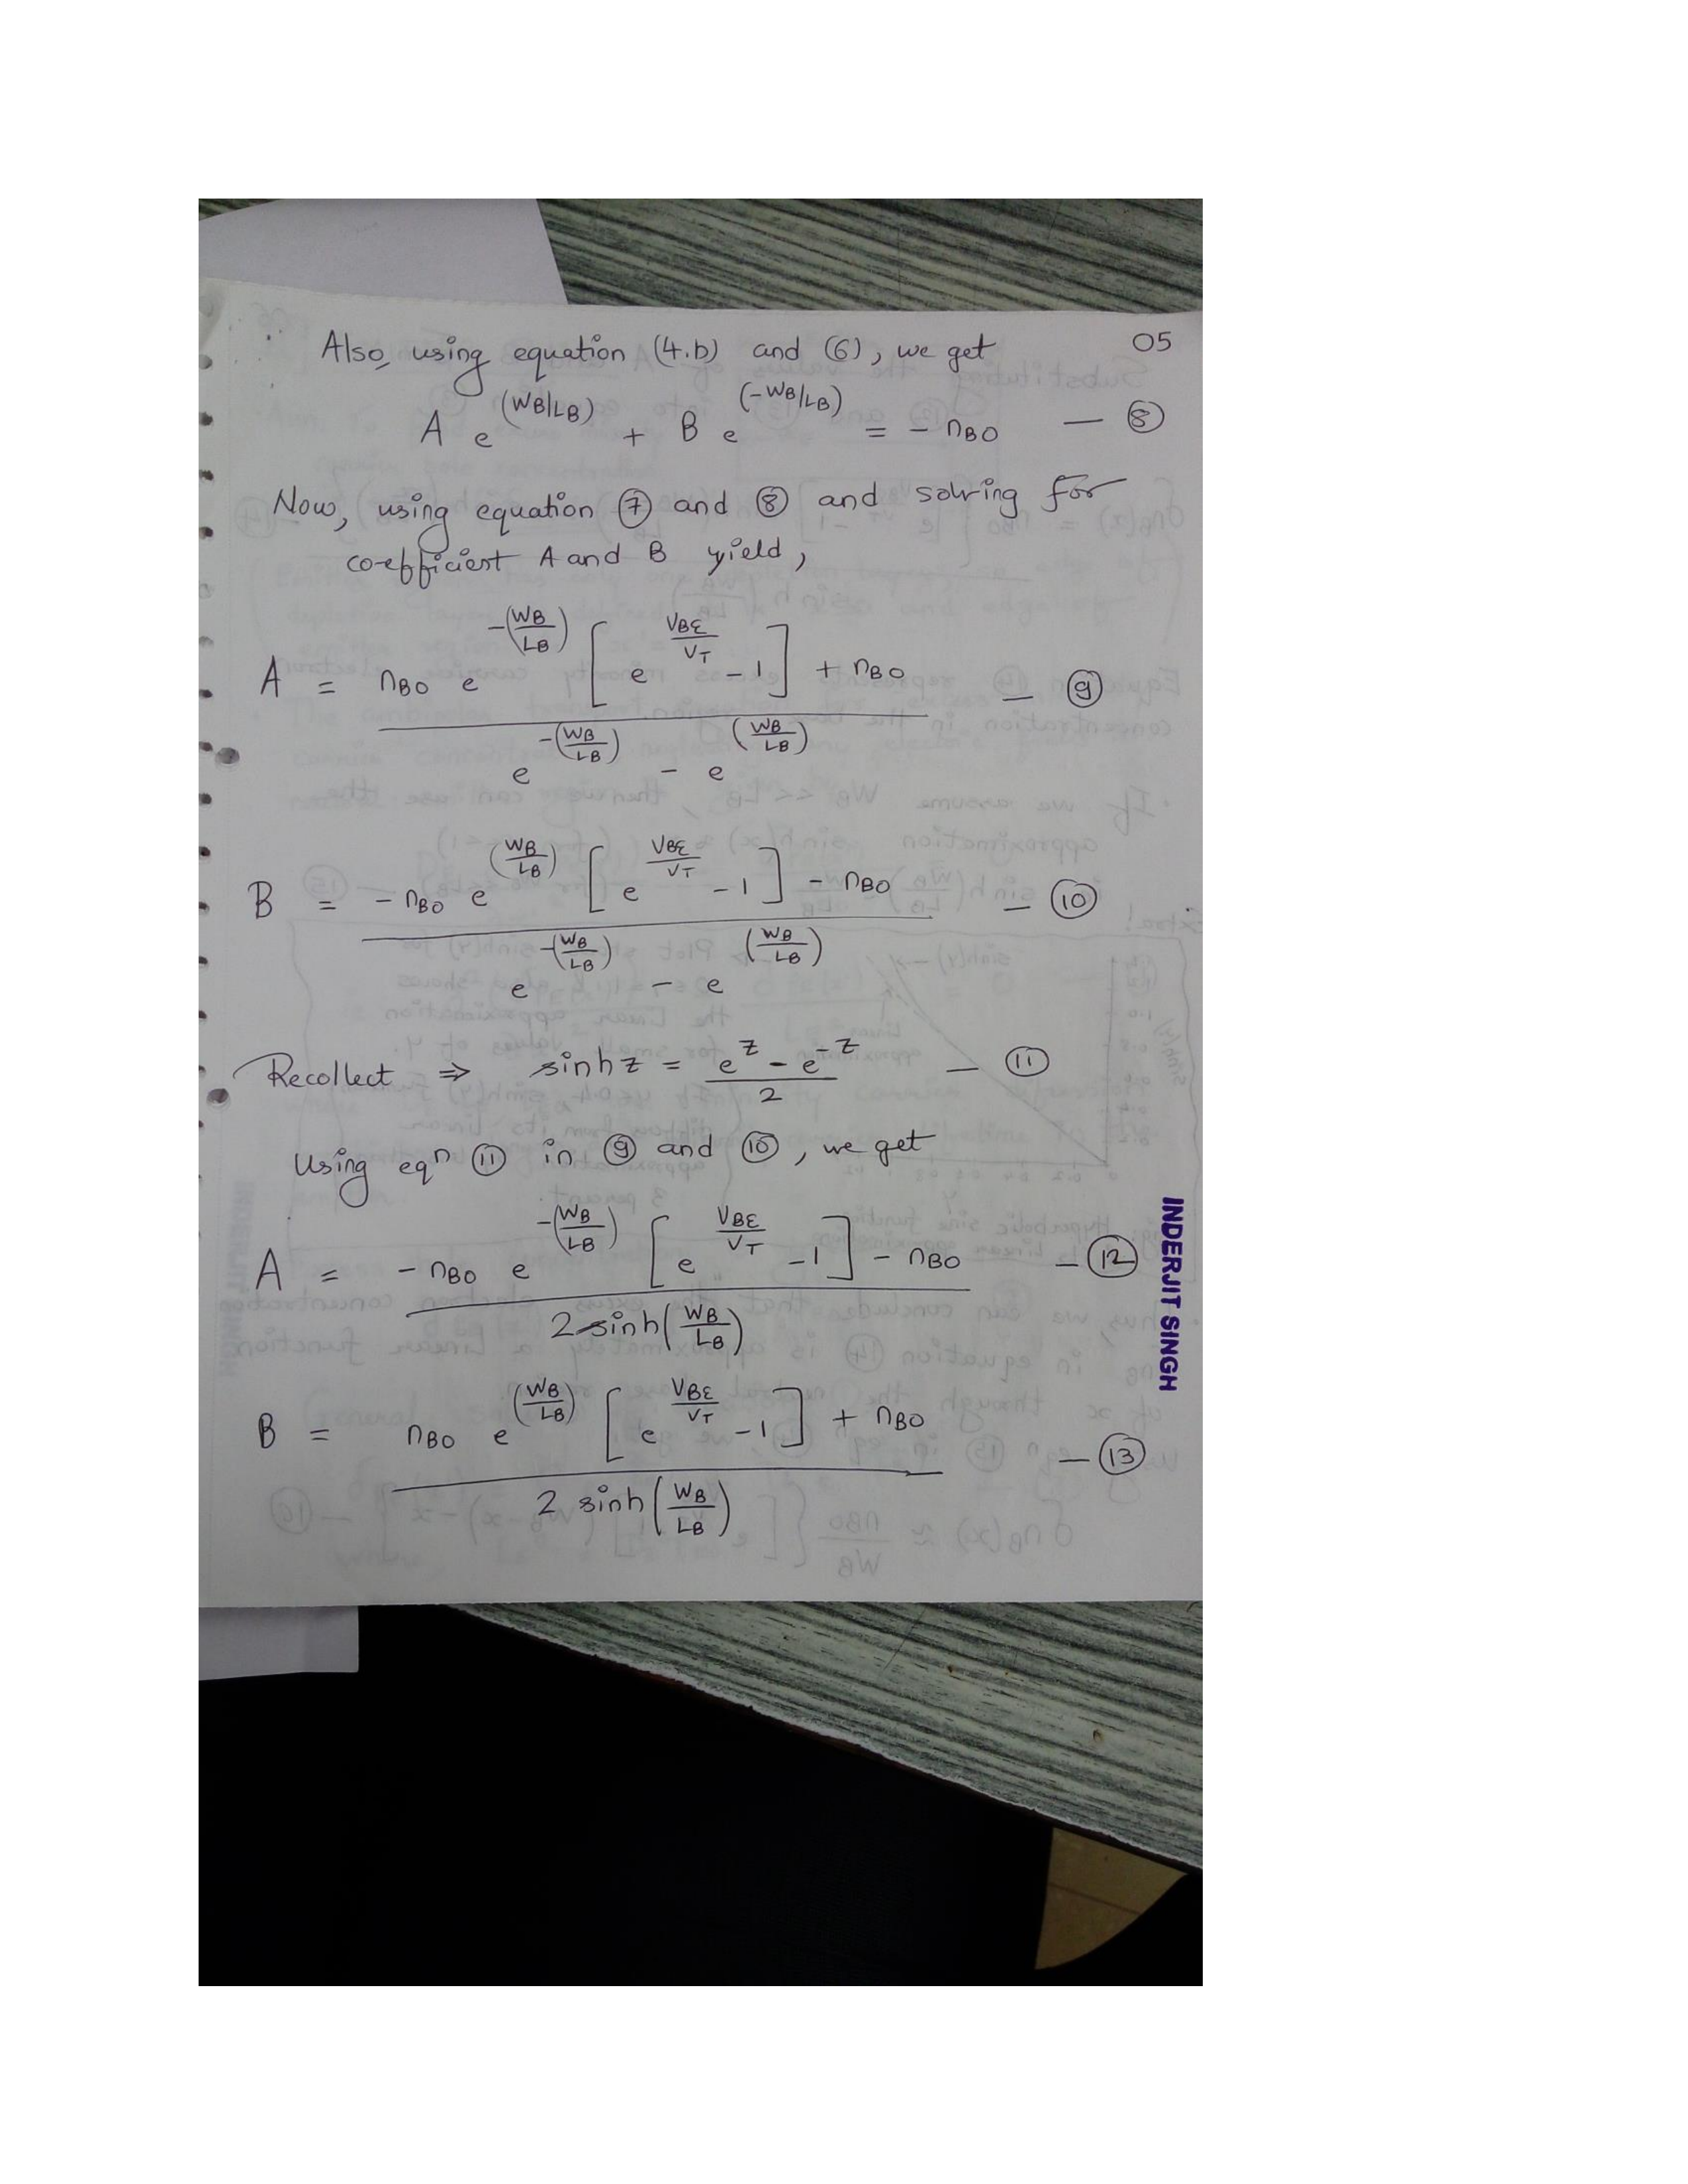 Also, using equation (4.b) and (6), we get 05
A e^(WB/LB) + B e^(-WB/LB) = - nBO — ⑧
Now, using equation ⑦ and ⑧ and solving for
co-efficient A and B yield,
A = nBO e^-(WB/LB) [e^(VBE/VT) -1] + nBO — ⑨
e^-(WB/LB) - e^(WB/LB)
B = - nBO e^(WB/LB) [e^(VBE/VT) -1] - nBO — ⑩
e^-(WB/LB) - e^(WB/LB)
Recollect ⇒ sinh z = (e^z - e^-z)/2 — ⑪
Using eqn ⑪ in ⑨ and ⑩, we get
A = - nBO e^-(WB/LB) [e^(VBE/VT) -1] - nBO — ⑫
2 sinh(WB/LB)
B = nBO e^(WB/LB) [e^(VBE/VT) -1] + nBO — ⑬
2 sinh(WB/LB)
INDERJIT SINGH